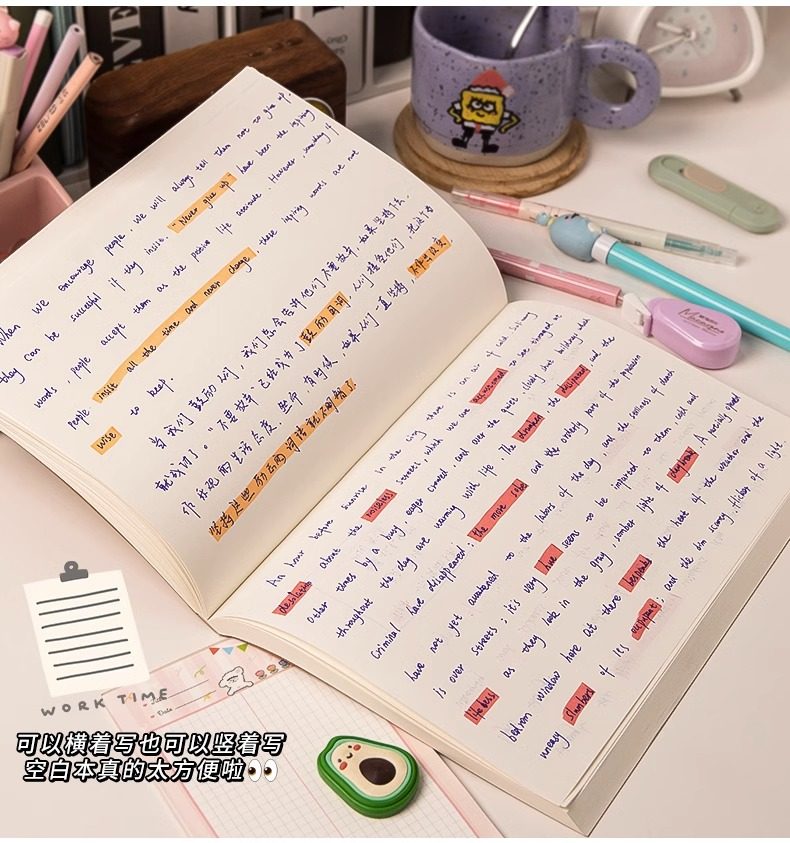 When we encourage people, we will always tell them not to give up.
they can be successful if they insist. "Never give up" have been the
words, people accept them as the life However, if
people insist all the time and never change, these words are not
wise to keep.
当我们鼓励人们,我们总会告诉他们不要放弃,如果坚持了
就成功了。"不要放弃"已经成为了鼓励的词,人们接受他们,把这个当
作乐观的生活态度,然而有时候,如果人们一直坚持,
坚持这些励志的词语就不明智了
An hour before sunrise in the city there is an air of cold
desolation about the noiseless streets, which we are accustomed to see thronged at
other times by a busy, eager crowd, and over the quiet, closely shut buildings which
throughout the day are warming with life. The drunken, the dissipated and the
criminal have disappeared; the more sober and the orderly part of the population
have not yet awakened to the labors of the day, and the stillness of death
is over streets; it's very hue seems to be imparted to them, cold and
lifeless as they look in the gray, somber light of daybreak. A partially opened
bedroom window here at there bespeaks the heat of the weather and the
uneasy slumbers of its occupant; and the dim scanty flicker of a light.
WORK TIME
Date
可以横着写也可以竖着写
空白本真的太方便啦👀